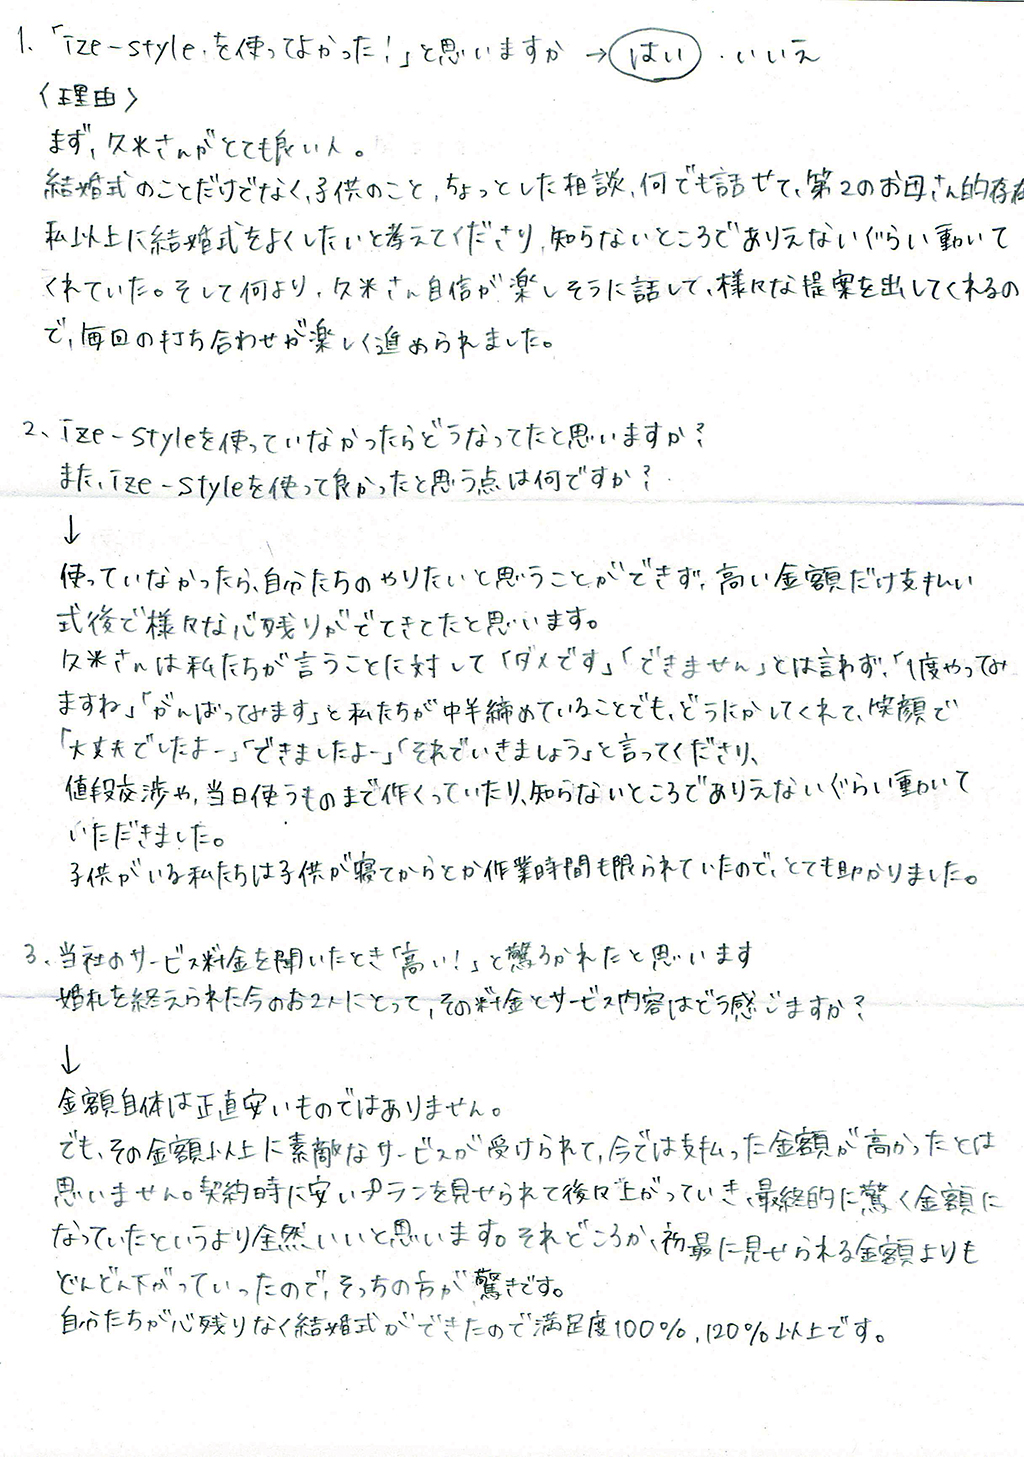 1、「ize-style を使ってよかった！」と思いますか →はい・いいえ
〈理由〉
まず、久米さんがとても良い人。
結婚式のことだけでなく、子供のこと、ちょっとした相談、何でも話せて、第2のお母さん的存在
私以上に結婚式をよくしたいと考えてくださり、知らないところでありえないぐらい動いて
くれていた。そして何より、久米さん自信が楽しそうに話して、様々な提案を出してくれるの
で、毎回の打ち合わせが楽しく進められました。
2、ize-styleを使っていなかったらどうなってたと思いますか？
また、ize-styleを使って良かったと思う点は何ですか？
↓
使っていなかったら、自分たちのやりたいと思うことができず、高い金額だけ支払い
式後で様々な心残りがでてきてたと思います。
久米さんは私たちが言うことに対して「ダメです」「できません」とは言わず、「1度やってみ
ますね」「がんばってみます」と私たちが半締めていることでも、どうにかしてくれて、笑顔で
「大丈夫でしたよー」「できましたよー」「それでいきましょう」と言ってくださり、
値段交渉や、当日使うものまで作くっていたり、知らないところでありえないぐらい動いて
いただきました。
子供がいる私たちは子供が寝てからとか作業時間も限られていたので、とても助かりました。
3、当社のサービス料金を聞いたとき「高い！」と驚ろかれたと思います
婚礼を終えられた今のお2人にとって、その料金とサービス内容はどう感じますか？
↓
金額自体は正直安いものではありません。
でも、その金額以上に素敵なサービスが受けられて、今では支払った金額が高かったとは
思いません。契約時に安いプランを見せられて後々上がっていき、最終的に驚く金額に
なっていたというより全然いいと思います。それどころか、初最に見せられる金額よりも
どんどん下がっていったので、そっちの方が驚きです。
自分たちが心残りなく結婚式ができたので満足度100%、120%以上です。